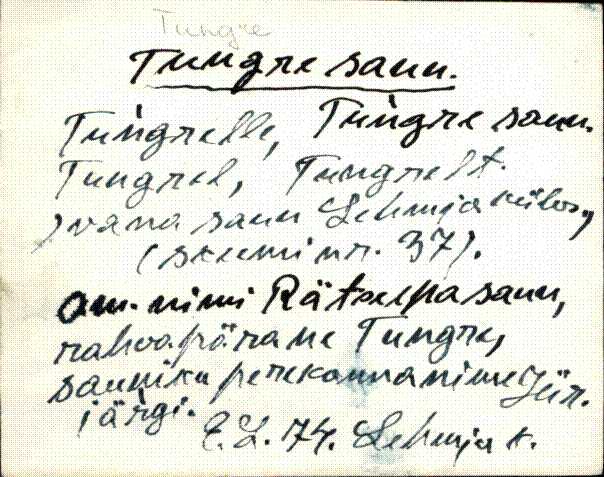 Tungre
Tungre saun.
Tungrelle, Tungre saun.
Tungrel, Tungrelt.
vana saun Lehmja külas,
(skeemi nr. 37).
Om. nimi Rätsepa saun,
rahvapärane Tungre,
sauniku perekonnanime Jür.
järgi.
E.L. 74. Lehmja k.